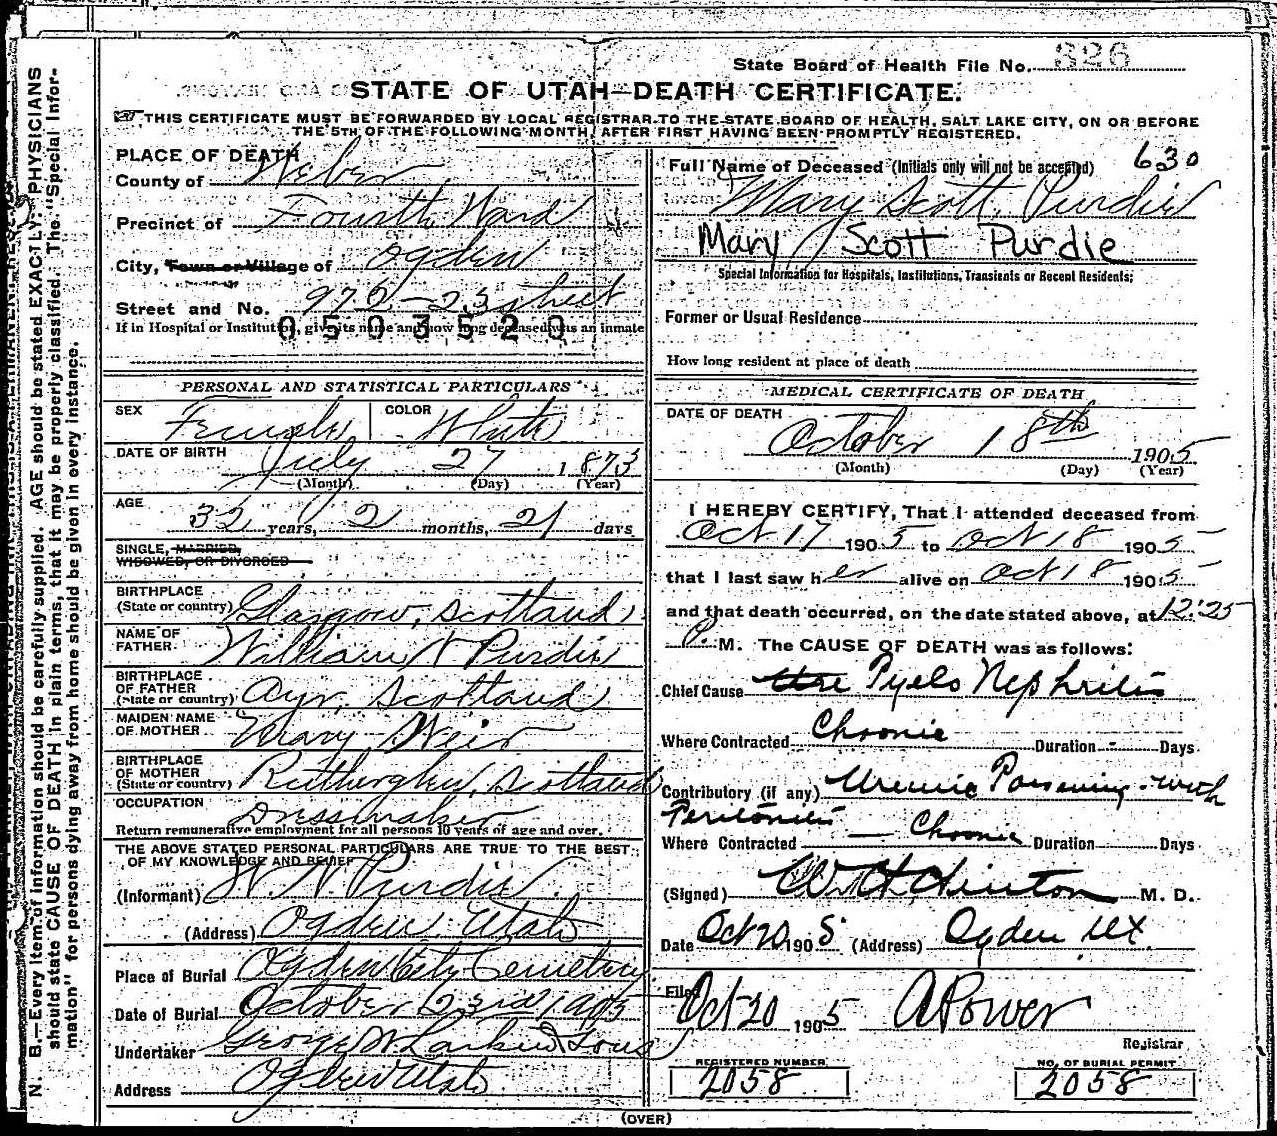 State Board of Health File No. 326
STATE OF UTAH—DEATH CERTIFICATE.
THIS CERTIFICATE MUST BE FORWARDED BY LOCAL REGISTRAR TO THE STATE BOARD OF HEALTH, SALT LAKE CITY, ON OR BEFORE
THE 5TH OF THE FOLLOWING MONTH, AFTER FIRST HAVING BEEN PROMPTLY REGISTERED.
N. B.—Every item of information should be carefully supplied. AGE should be stated EXACTLY. PHYSICIANS
should state CAUSE OF DEATH in plain terms, that it may be properly classified. The "Special Infor-
mation" for persons dying away from home should be given in every instance.
PLACE OF DEATH
County of Weber
Precinct of Fourth Ward
City, Town or Village of Ogden
Street and No. 972 - 23 street
If in Hospital or Institution, give its name and how long deceased was an inmate
0503520
PERSONAL AND STATISTICAL PARTICULARS
SEX Female COLOR White
DATE OF BIRTH July 27 1873
(Month) (Day) (Year)
AGE 32 years, 2 months, 21 days
SINGLE, MARRIED,
WIDOWED, OR DIVORCED
BIRTHPLACE
(State or country) Glasgow, Scotland
NAME OF
FATHER William N Purdie
BIRTHPLACE
OF FATHER
(State or country) Ayr, Scotland
MAIDEN NAME
OF MOTHER Mary Weir
BIRTHPLACE
OF MOTHER
(State or country) Rutherglen, Scotland
OCCUPATION Dressmaker
Return remunerative employment for all persons 10 years of age and over.
THE ABOVE STATED PERSONAL PARTICULARS ARE TRUE TO THE BEST
OF MY KNOWLEDGE AND BELIEF
(Informant) W. N. Purdie
(Address) Ogden Utah
Place of Burial Ogden City Cemetery
Date of Burial October 23rd 1905
Undertaker George W Larkin & Sons
Address Ogden Utah
Full Name of Deceased (Initials only will not be accepted) 630
Mary Scott Purdie
Mary Scott Purdie
Special Information for Hospitals, Institutions, Transients or Recent Residents;
Former or Usual Residence
How long resident at place of death
MEDICAL CERTIFICATE OF DEATH
DATE OF DEATH
October 18th 1905
(Month) (Day) (Year)
I HEREBY CERTIFY, That I attended deceased from
Oct 17 1905 to Oct 18 1905
that I last saw her alive on Oct 18 1905
and that death occurred, on the date stated above, at 12:25
P. M. The CAUSE OF DEATH was as follows:
Chief Cause Pyelo Nephritis
Where Contracted Chronic Duration - Days
Contributory (if any) Uremic Poisening - with
Peritonitis
Where Contracted Chronic Duration Days
(Signed) M. D.
Date Oct 20 1905 (Address) Ogden Ut.
Filed Oct 20 1905 A Power
Registrar
REGISTERED NUMBER
2058
NO. OF BURIAL PERMIT
2058
(OVER)